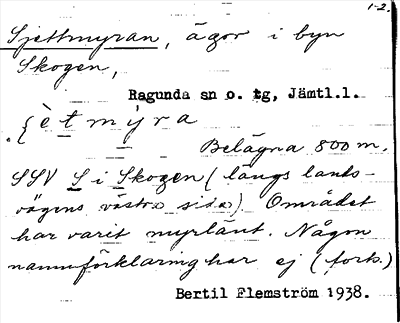 1-2.
Sjettmyran, ägor i byn
Skogen,
Ragunda sn o. tg, Jämtl.l.
èt mȳra
Belägna 800 m.
SSV S i Skogen (längs lands-
vägens västra sida). Området
har varit myrlänt. Någon
namnförklaring har ej (forts.)
Bertil Flemström 1938.